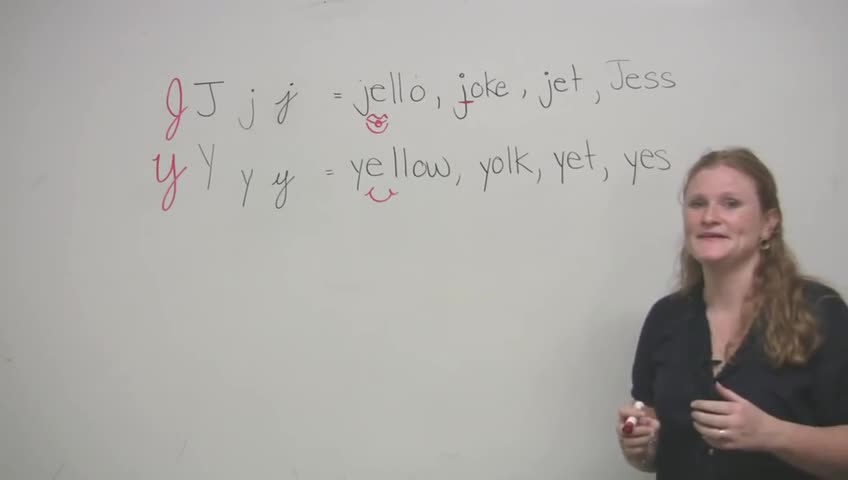 J J j j = jello, joke, jet, Jess
Y Y y y = yellow, yolk, yet, yes